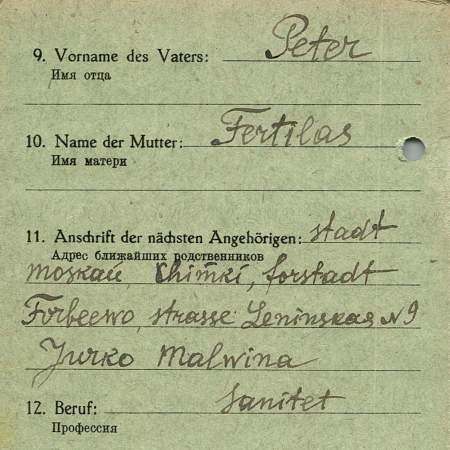 9. Vorname des Vaters: Peter
Имя отца
10. Name der Mutter: Fertilas
Имя матери
11. Anschrift der nächsten Angehörigen: stadt
Адрес ближайших родственников
Moskau, Chimki, forstadt
Forbeewo, strasse Leninskas N 9
Jurko Malwina
12. Beruf: Sanitet
Профессия